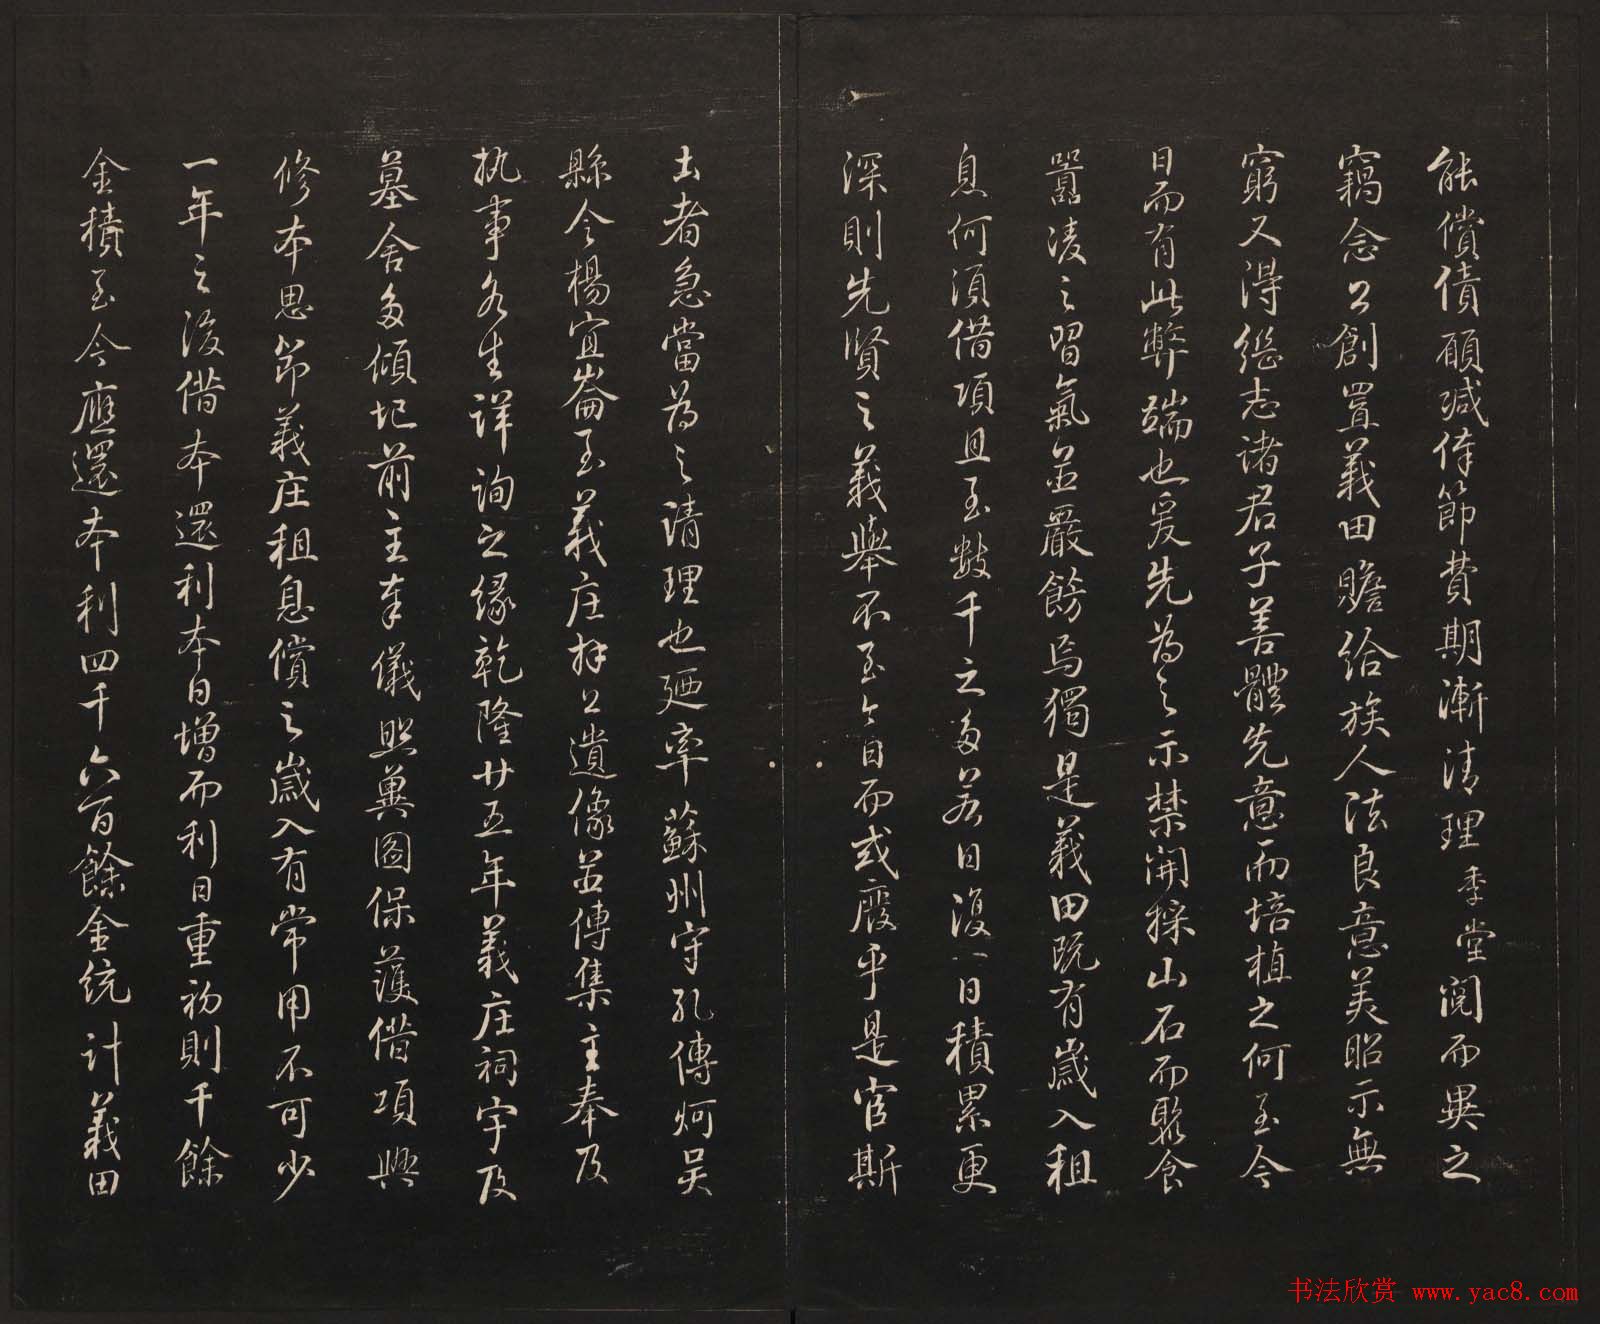 能償債願減俸節費期漸清理季堂閱而異之
竊念公創置義田贍給族人法良意美昭示無
窮又得繼志諸君子善體先意而培植之何至今
日而有此弊端也爰先為之示禁開採山石而賤食
囂凌之習氣並嚴飭焉獨是義田既有歲入租
息何須借項且至數千之多若日復一日積累更
深則先賢之義舉不至今日而或廢乎是官斯
土者急當為之清理也廼率蘇州守孔傳炣吳
縣令楊宜崙至義庄拜公遺像並傳集主奉及
執事各生詳詢之緣乾隆廿五年義庄祠宇及
墓舍多傾圮前主奉儀照冀圖保護借項興
修本思節義庄租息償之歲入有常用不可少
一年之後借本還利本日增而利日重初則千餘
金積至今應還本利四千六百餘金統計義田
书法欣赏 www.yac8.com